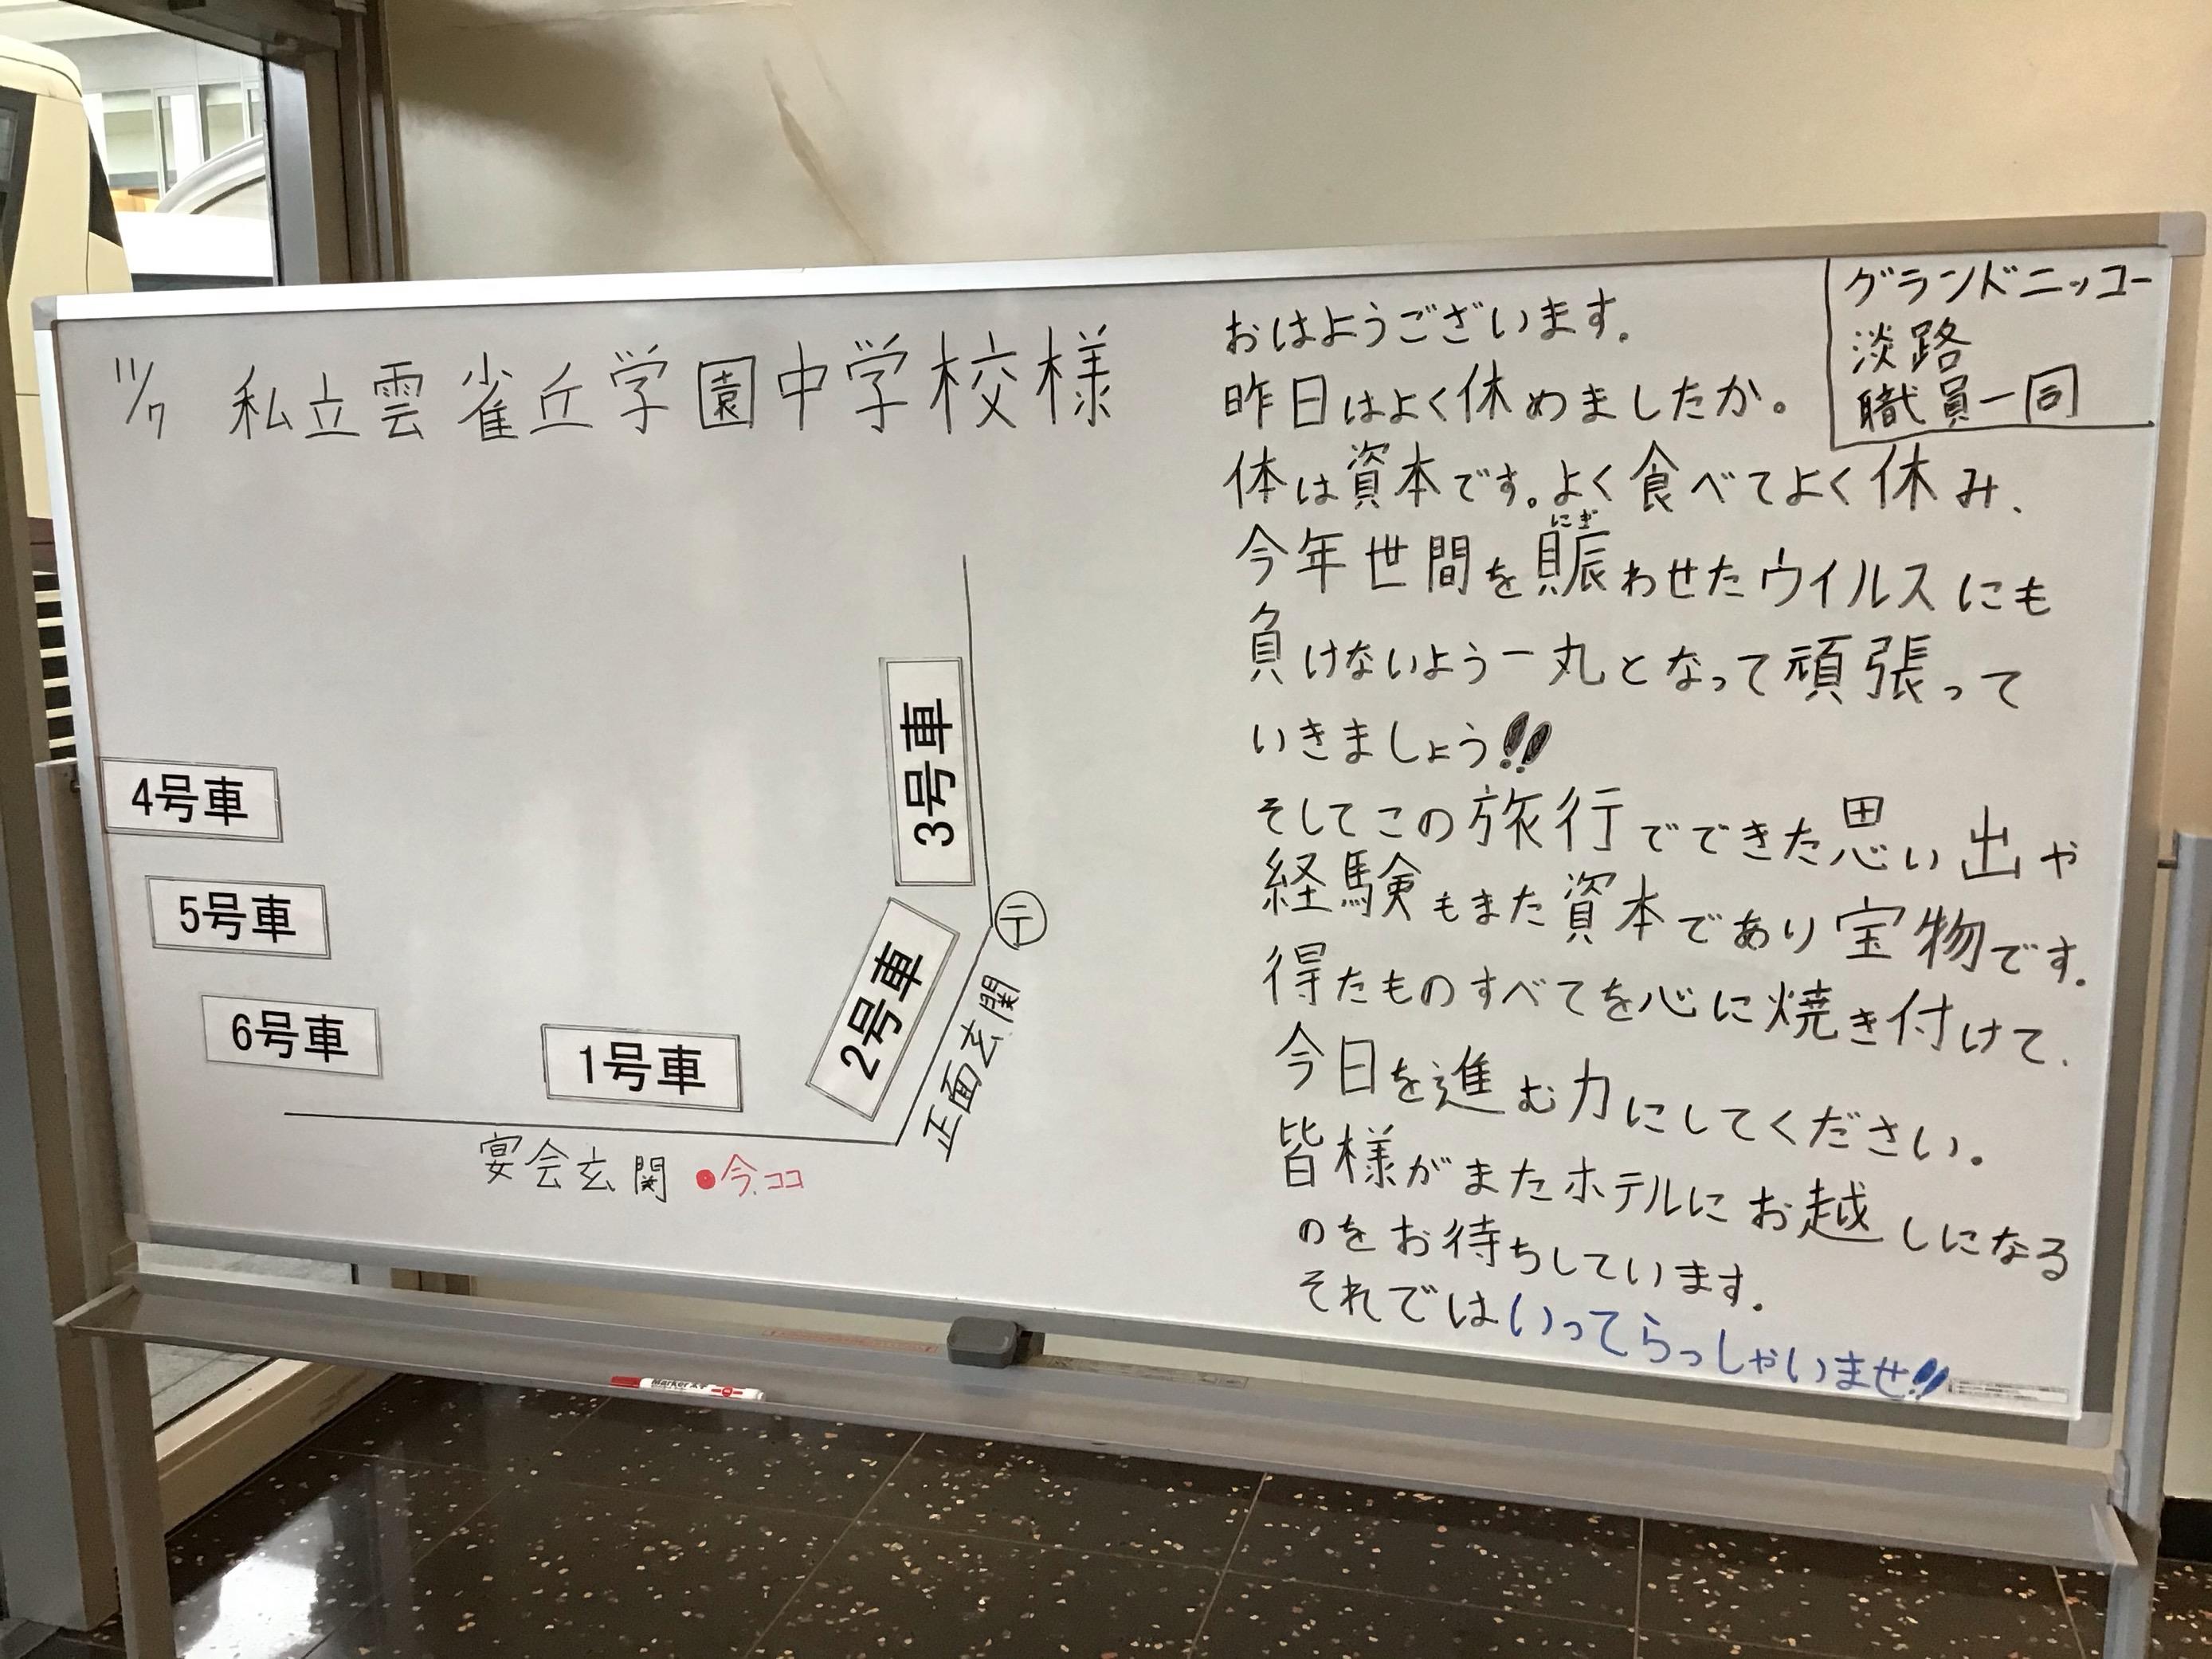 11/7 私立雲雀丘学園中学校様
3号車
4号車
5号車
2号車
6号車
1号車
〒
正面玄関
宴会玄関 ●今ココ
グランドニッコー
淡路
職員一同
おはようございます。
昨日はよく休めましたか。
体は資本です。よく食べてよく休み、
にぎ
今年世間を賑わせたウイルスにも
負けないよう一丸となって頑張って
いきましょう!!
そしてこの旅行でできた思い出や
経験もまた資本であり宝物です。
得たものすべてを心に焼き付けて、
今日を進む力にしてください。
皆様がまたホテルにお越しになる
のをお待ちしています。
それではいってらっしゃいませ!!